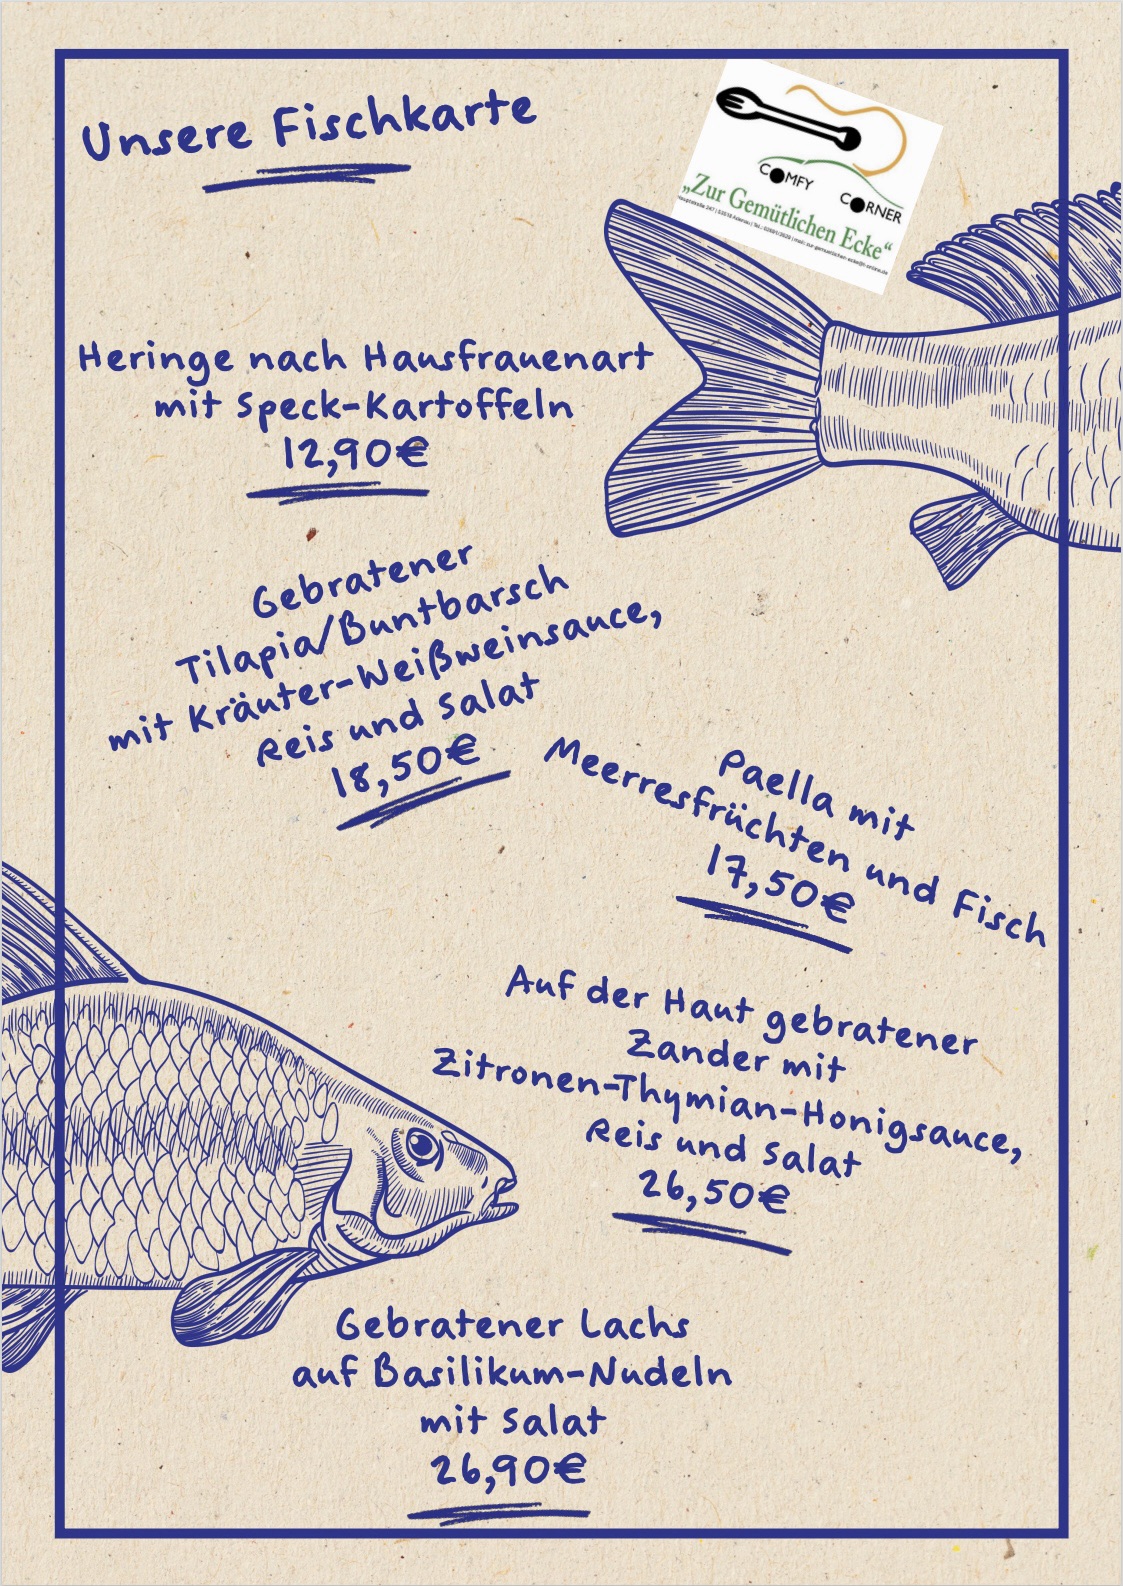 Unsere Fischkarte
COMFY CORNER
„Zur Gemütlichen Ecke“
Heringe nach Hausfrauenart
mit Speck-Kartoffeln
12,90€
Gebratener
Tilapia/Buntbarsch
mit Kräuter-Weißweinsauce,
Reis und Salat
18,50€
Paella mit
Meerresfrüchten und Fisch
17,50€
Auf der Haut gebratener
Zander mit
Zitronen-Thymian-Honigsauce,
Reis und Salat
26,50€
Gebratener Lachs
auf Basilikum-Nudeln
mit Salat
26,90€